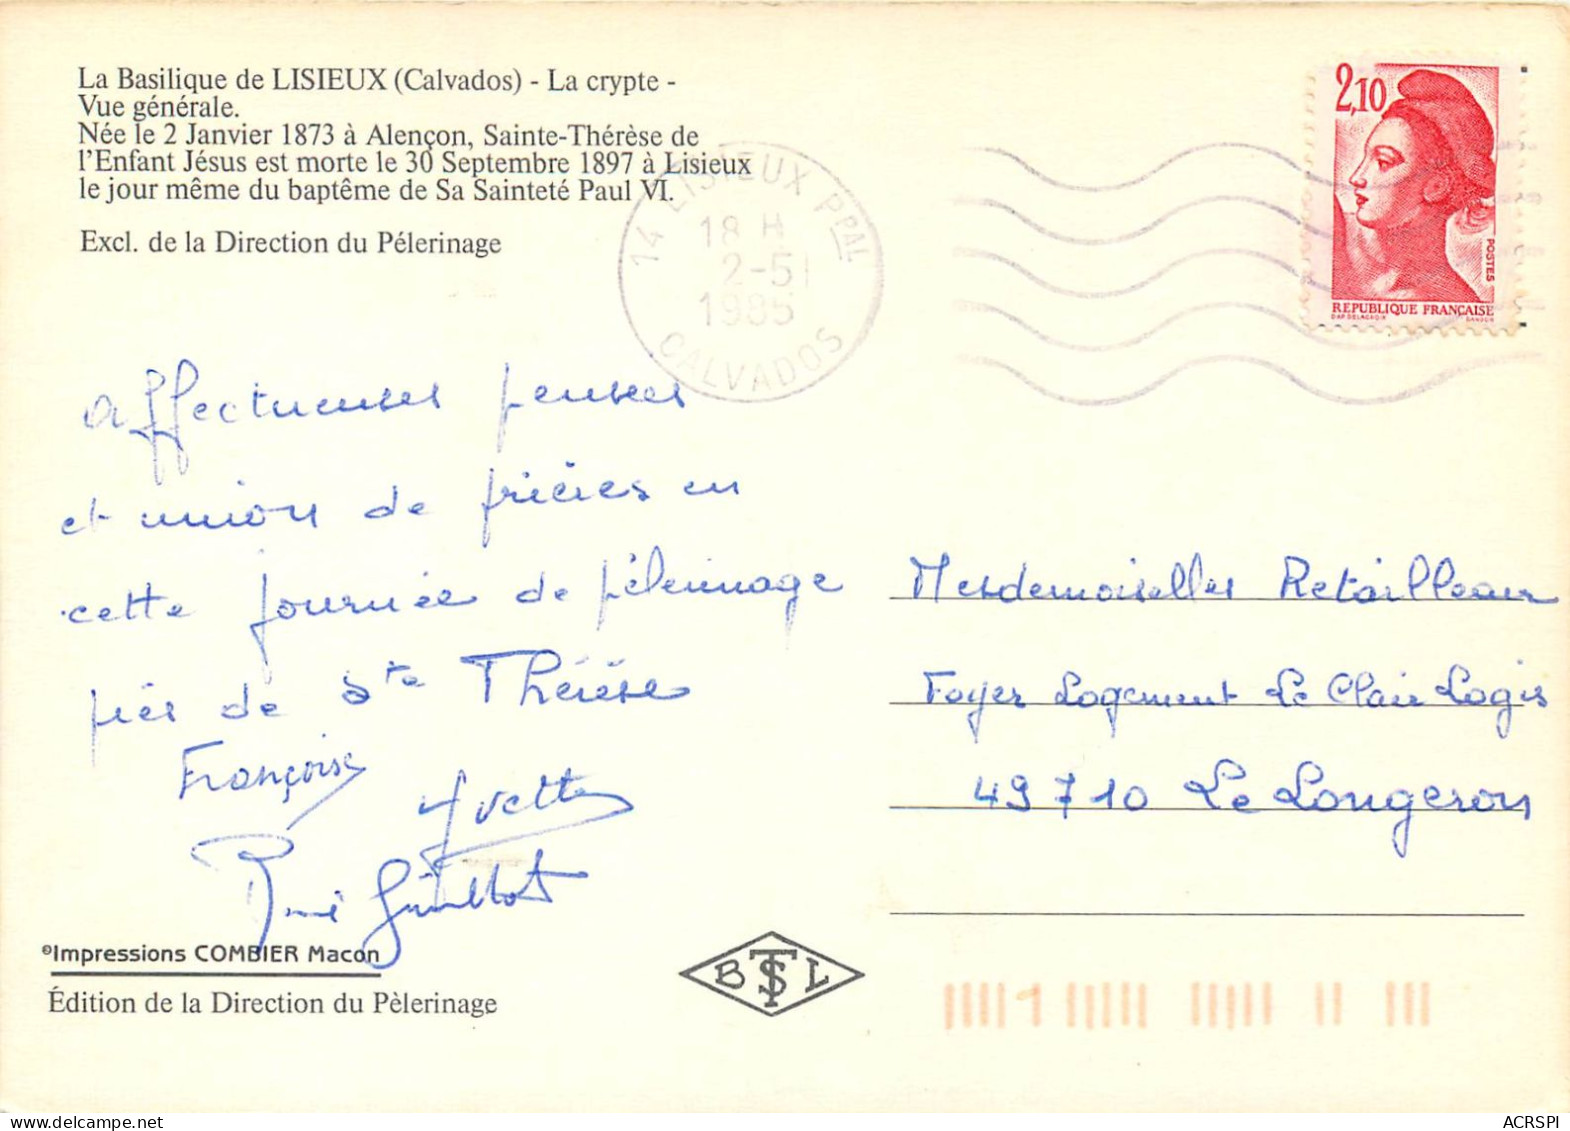 La Basilique de LISIEUX (Calvados) - La crypte -
Vue générale.
Née le 2 Janvier 1873 à Alençon, Sainte-Thérèse de
l'Enfant Jésus est morte le 30 Septembre 1897 à Lisieux
le jour même du baptême de Sa Sainteté Paul VI.
Excl. de la Direction du Pélerinage
14 LISIEUX PPAL
18 H
2-5
1985
CALVADOS
2,10
POSTES
REPUBLIQUE FRANÇAISE
D'AP. DELACROIX GANDON
affectueuses pensées
et union de prières en
cette journée de pèlerinage
près de Ste Thérèse
Françoise
Yvette
René Guillot
Mesdemoiselles Retailleau
Foyer Logement Le Clair Logis
49710 Le Longeron
©Impressions COMBIER Macon
Édition de la Direction du Pèlerinage
B T S L
ACRSPI